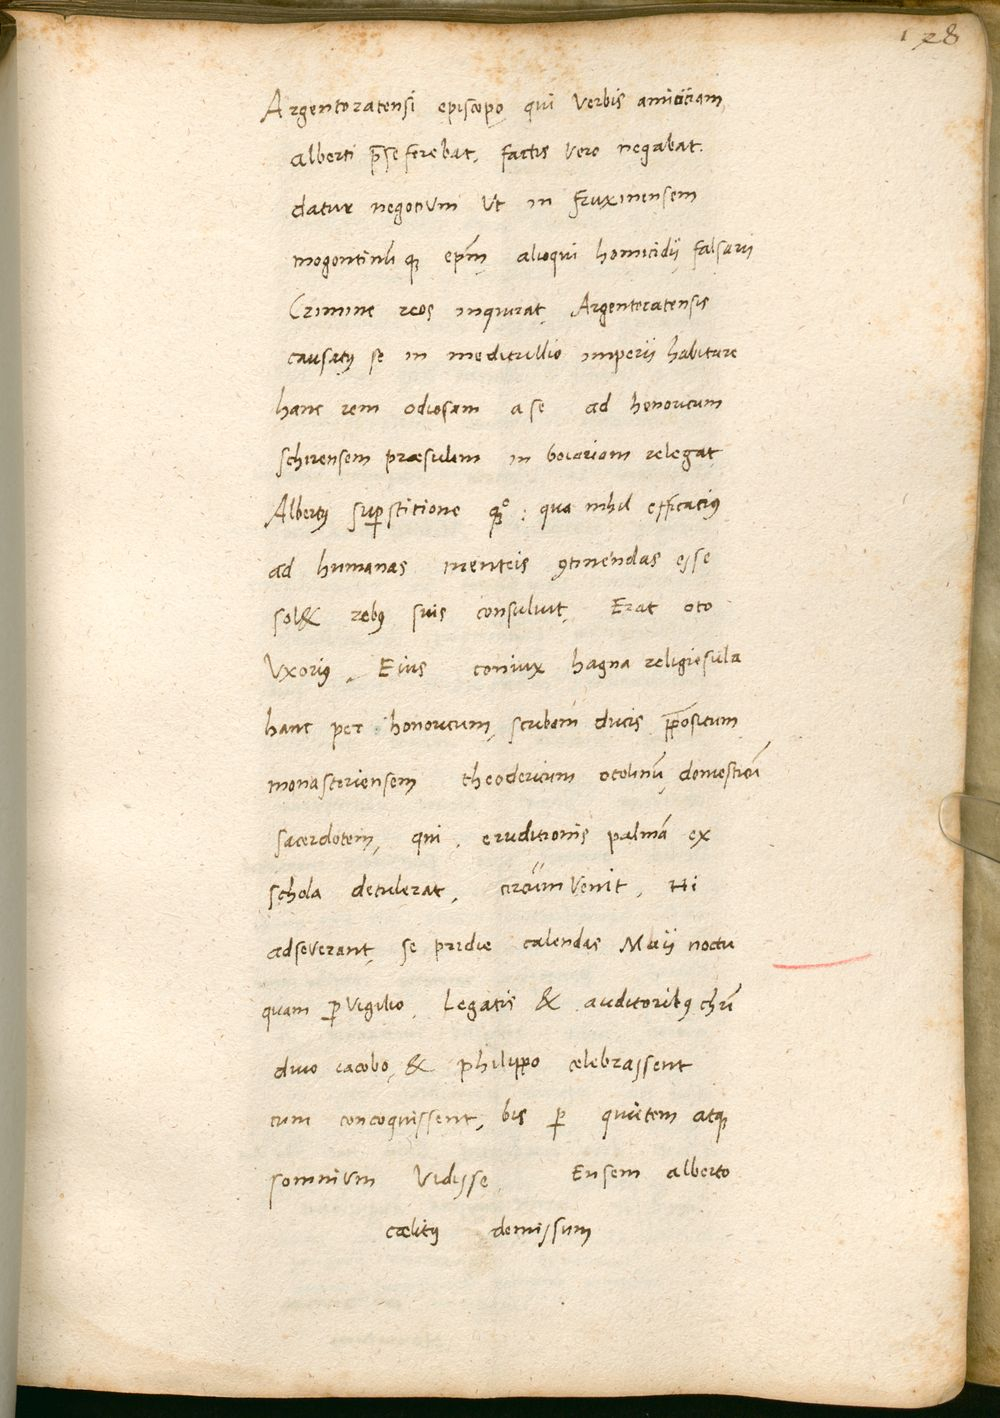 128
Argentoratensi episcopo qui verbis amiciciam
alberti p̄seferebat, factis vero negabat.
datur negotium ut in fruxinensem
mogontinūq; ep̄m alioqui homicidij falsarij
Crimine reos inquirat, Argentoratensis
causatꝰ se in meditullio imperij habitare
hanc rem odiosam a se ad henoricum
schirensem præsulem in boiariam relegat
Albertꝰ suꝑstitione qꝫ°: qua nihil efficaciꝰ
ad humanas menteis ꝯtinendas esse
sol& rebꝰ suis consuluit, Erat oto
Vxoriꝰ, Eius coniux hagna religiosula
hanc per honoricum, scribam ducis p̄positum
monasteriensem theodericum otolinū, domesticū
sacerdotem, qui, eruditionis palmā ex
schola detulerat, circumvenit, Hi
adseverant, se pridie calendas Maij noctu
quam ꝑvigilio, Legatis & auditoribꝰ chrī
divo iacobo, & philippo celebrassent
cum concoquissent, bis ꝑ quietem atq;
somnium vidisse, Ensem alberto
cælitꝰ demissum